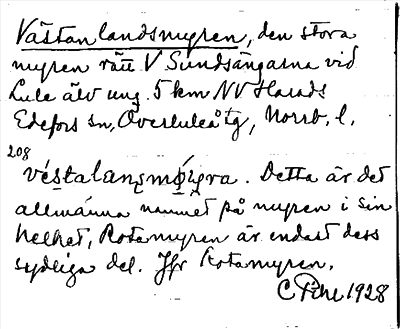 Västanlandsmyren, den stora
myren rätt V Sundsängarna vid
Lule älv ung. 5 km NV Harads
Edefors sn, Överluleå tg, Norrb. l.
208
Detta är det
allmänna namnet på myren i sin
helhet, Rotamyren är endast dess
sydliga del. Jfr Rotamyren.
C Pihl 1928